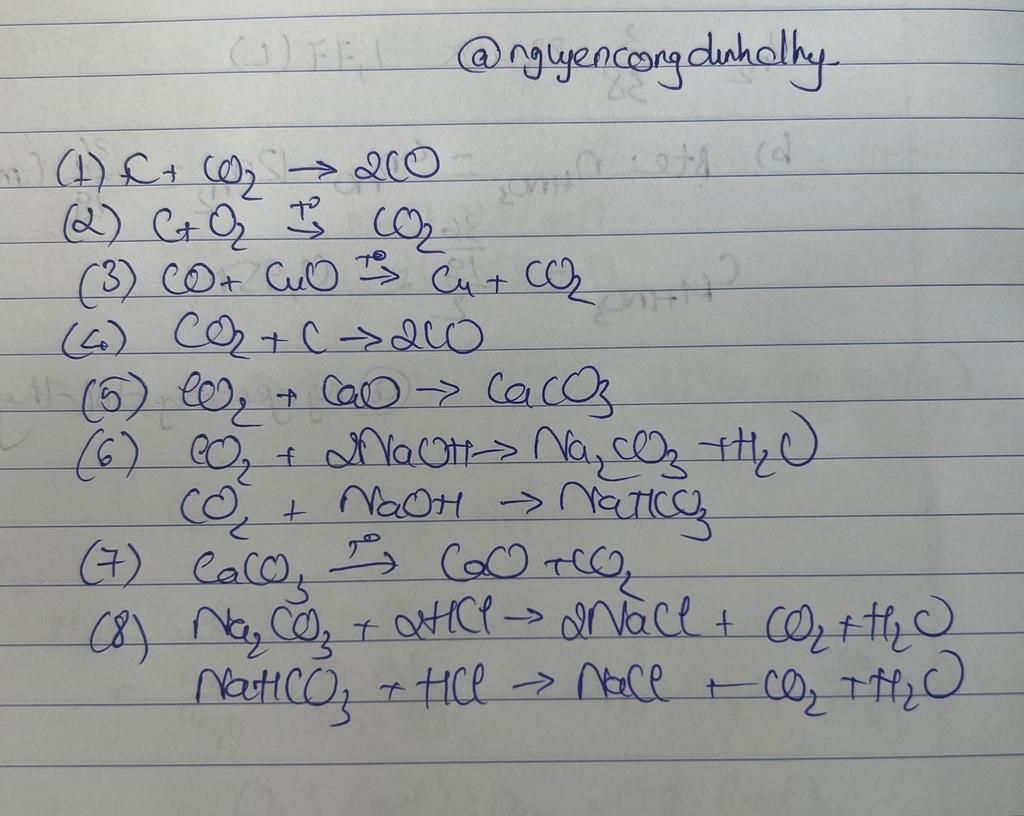 @nguyencongdinhdhy
(1) C + CO₂ → 2CO
(2) C + O₂ →(T°) CO₂
(3) CO + CuO →(T°) Cu + CO₂
(4) CO₂ + C → 2CO
(5) CO₂ + CaO → CaCO₃
(6) CO₂ + 2NaOH → Na₂CO₃ + H₂O
CO₂ + NaOH → NaHCO₃
(7) CaCO₃ →(T°) CaO + CO₂
(8) Na₂CO₃ + 2HCl → 2NaCl + CO₂ + H₂O
NaHCO₃ + HCl → NaCl + CO₂ + H₂O